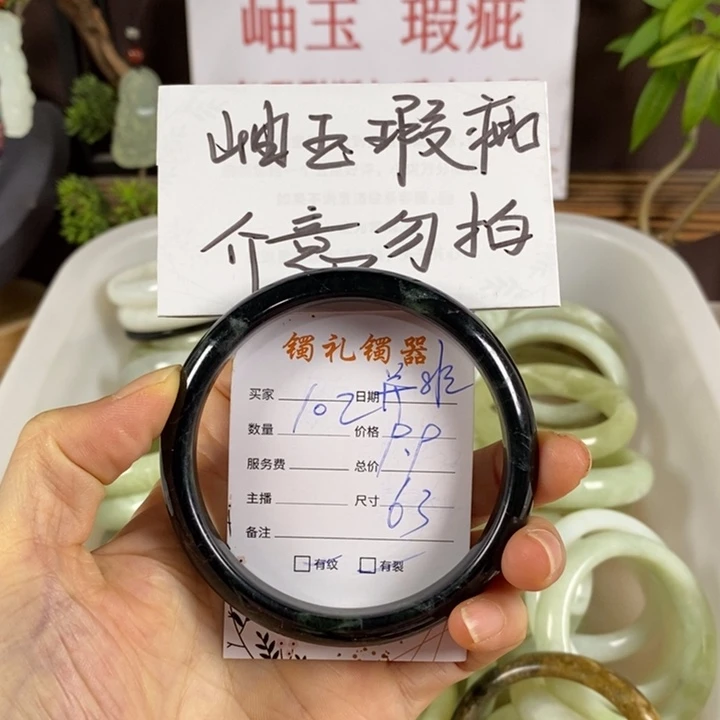 岫玉 瑕疵
岫玉瑕疵
介意勿拍
镯礼镯器
买家 日期
数量 价格 9.9
服务费 总价
主播 尺寸 63
备注
有纹 有裂